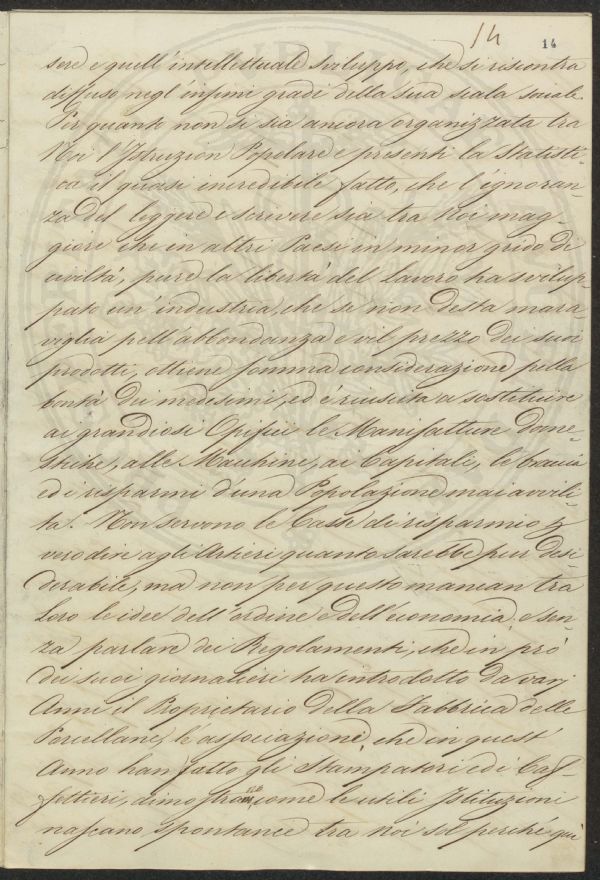 14 14
sere e quell'intellettuale sviluppo, che si riscontra
diffuso negl'infimi gradi della sua scala sociale.
Per quanto non si sia ancora organizzata tra
Noi l'Istruzion Popolare e presenti la Statisti-
ca il quasi incredibile fatto, che l'ignoran-
za del leggere e scrivere sia tra Noi mag-
giore che in altri Paesi in minor grido di
civiltà, pure la libertà del lavoro ha svilup-
pato un'industria, che se non desta mara-
viglia pell'abbondanza e vil prezzo dei suoi
prodotti, ottiene somma considerazione pella
bontà dei medesimi, ed è riuscita a sostituire
ai grandiosi Opificii le Manifatture Dome-
stiche, alle Macchine, ai Capitali, le braccia
ed i risparmi d'una Popolazione mai avvili-
ta. Non servono le Casse di risparmio p
vero dire agli Artieri quanto sarebbe pur desi-
derabile, ma non per questo mancan tra
Loro le idee dell'ordine e dell'economia, e sen-
za parlare dei Regolamenti, che in prò
dei suoi giornalieri ha introdotto da varj
Anni il Proprietario della Fabbrica delle
Porcellane, l'associazione, che in quest'
Anno han fatto gli Stampatori ed i Caf-
fettieri, dimostra come le utili Istituzioni
nascano spontanee tra Noi sol perchè qui